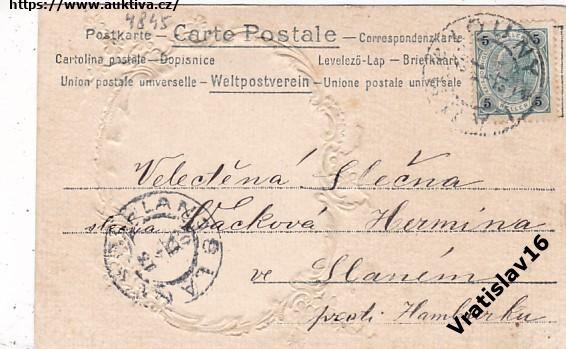 https://www.auktiva.cz/
4845
Postkarte — Carte Postale — Correspondenzkarte
Cartolina postale — Dopisnice
Levelező-Lap — Briefkaart
Union postale universelle — Weltpostverein — Unione postale universale
5 5
5 5
Veletěná Slečna
slečna Vacková Hermina
ve Slaném
proti Hamburku
SLAN SLA
Vratislav16